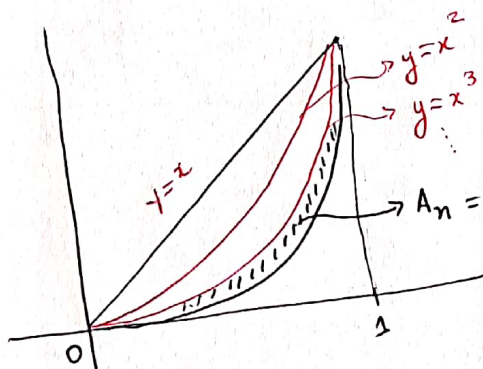 y=x²
y=x³
⋮
y=x
Aₙ =
0
1